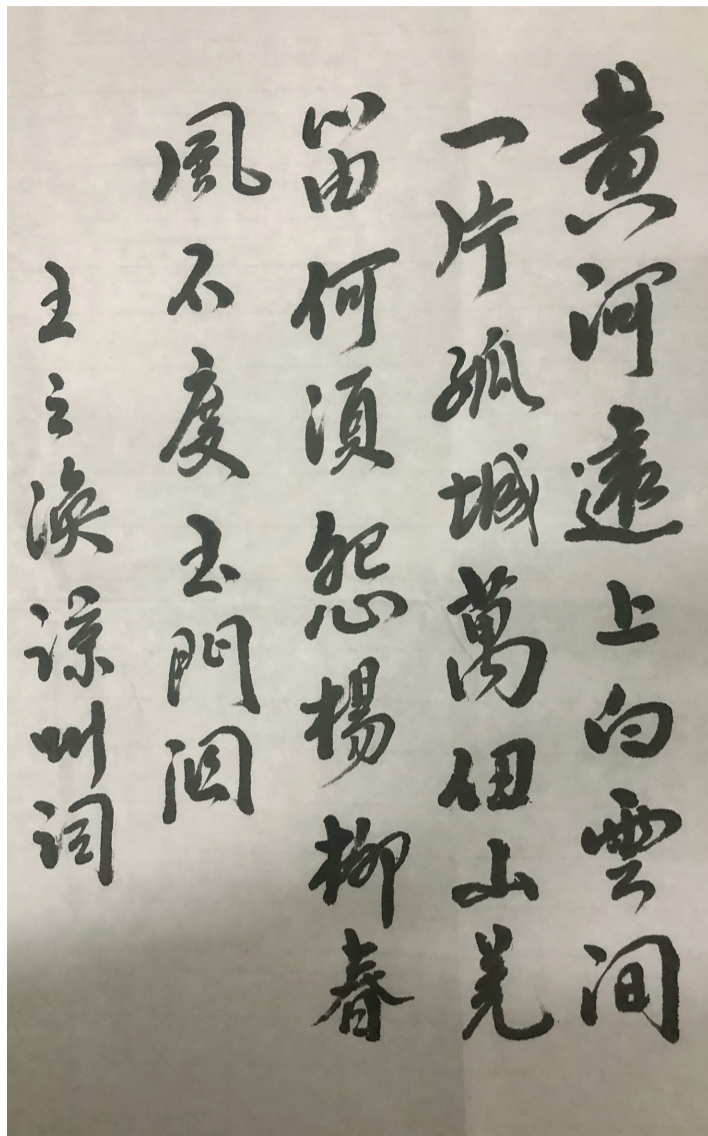 黄河遠上白雲间
一片孤城萬仞山羌
笛何須怨楊柳春
風不度玉門関
王之渙涼州词